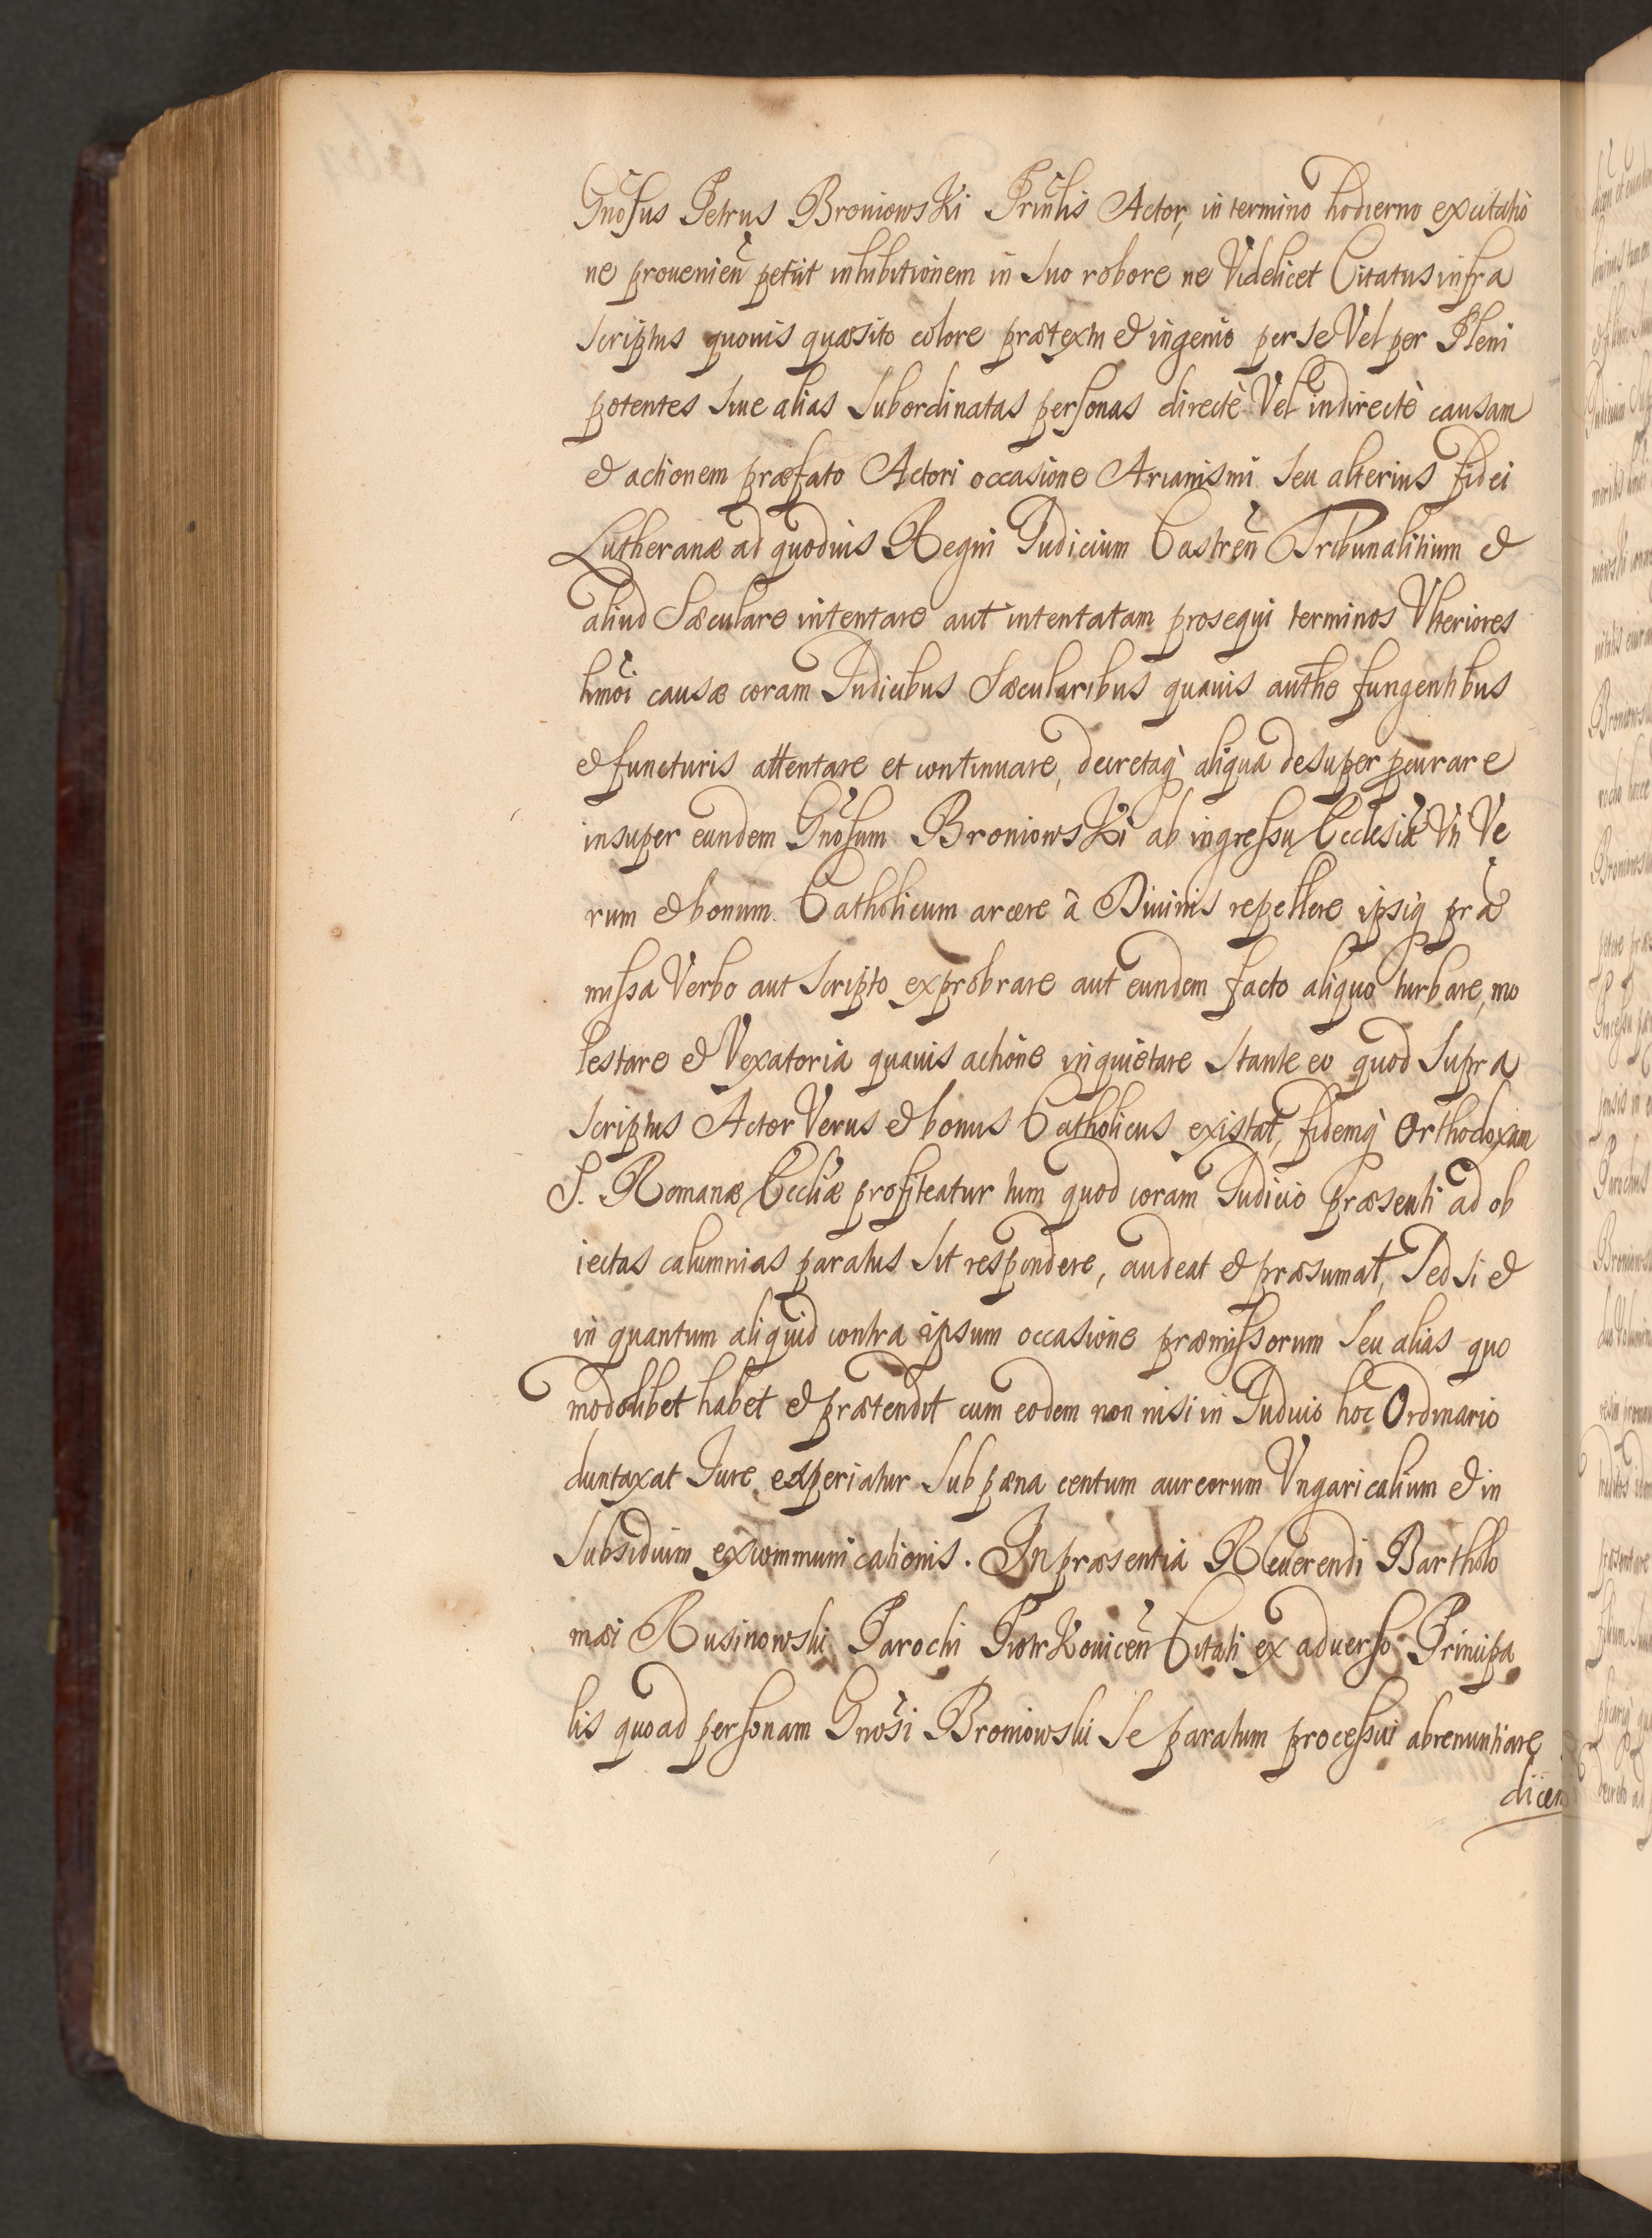 Gnosus Petrus Broniowski Prinlis Actor, in termino hodierno ex citatio
ne prouenien petiit inhibitionem in suo robore ne Videlicet Citatus infra
scriptus quouis quæsito colore prætextu et ingenio per se Vel per Pleni
potentes siue alias subordinatas personas directè Vel indirectè causam
et actionem præfato Actori occasione Arianismi seu alterius fidei
Lutheranæ ad quoduis Regni Iudicium Castren Tribunalitium et
aliud Sæculare intentare aut intentatam prosequi terminos Vlteriores
hmoi causæ coram Iudicibus Sæcularibus quauis authe fungentibus
et functuris attentare et continuare, decretaq aliqua desuper pcurare
insuper eundem Gnosum Broniowski ab ingressu Ecclesiæ Vti Ve
rum et bonum Catholicum arcere à Diuinis repellere ipsiq præ
missa Verbo aut scripto exprobrare aut eundem facto aliquo turbare, mo
lestare et Vexatoria quauis actione inquietare stante eo quod supra
scriptus Actor Verus et bonus Catholicus existat, fidemq Orthodoxam
S. Romanæ Eccliæ profiteatur tum quod coram Iudicio præsenti ad ob
iectas calumnias paratus sit respondere, audeat et præsumat, Sed si et
in quantum aliquid contra ipsum occasione præmissorum seu alias quo
modolibet habet et prætendit cum eodem non nisi in Iudicio hoc Ordinario
duntaxat Iure experiatur sub pæna centum aureorum Vngaricalium et in
subsidium excommunicationis. In præsentia Reuerendi Bartholo
mæi Rusinowski Parochi Piotrkouicen Citati ex aduerso Principa
lis quoad personam Gnosi Broniowski se paratum processui abrenuntiare
dicen